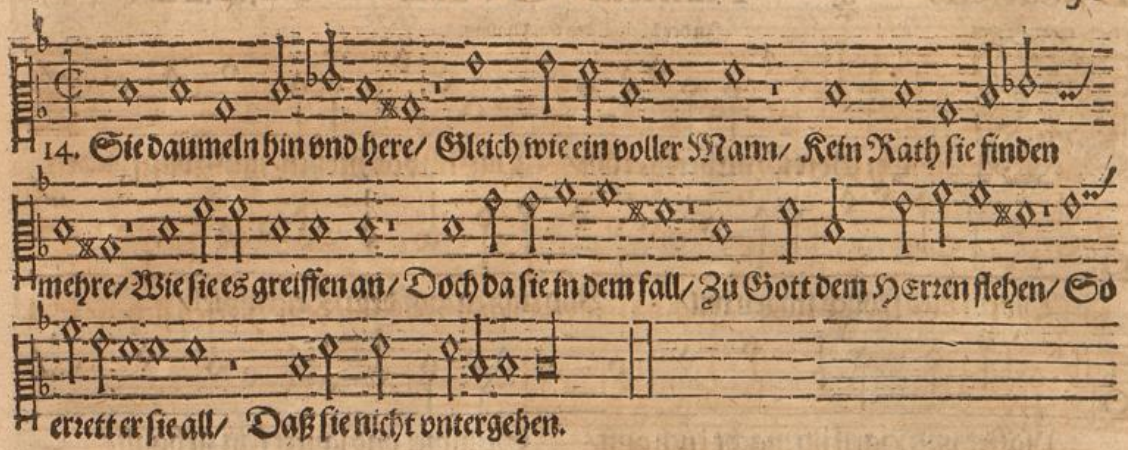 14. Sie daumeln hin vnd here/ Gleich wie ein voller Mann/ Kein Rath sie finden
mehre/ Wie sie es greiffen an/ Doch da sie in dem fall/ Zu Gott dem HErren flehen/ So
errett er sie all/ Daß sie nicht vntergehen.